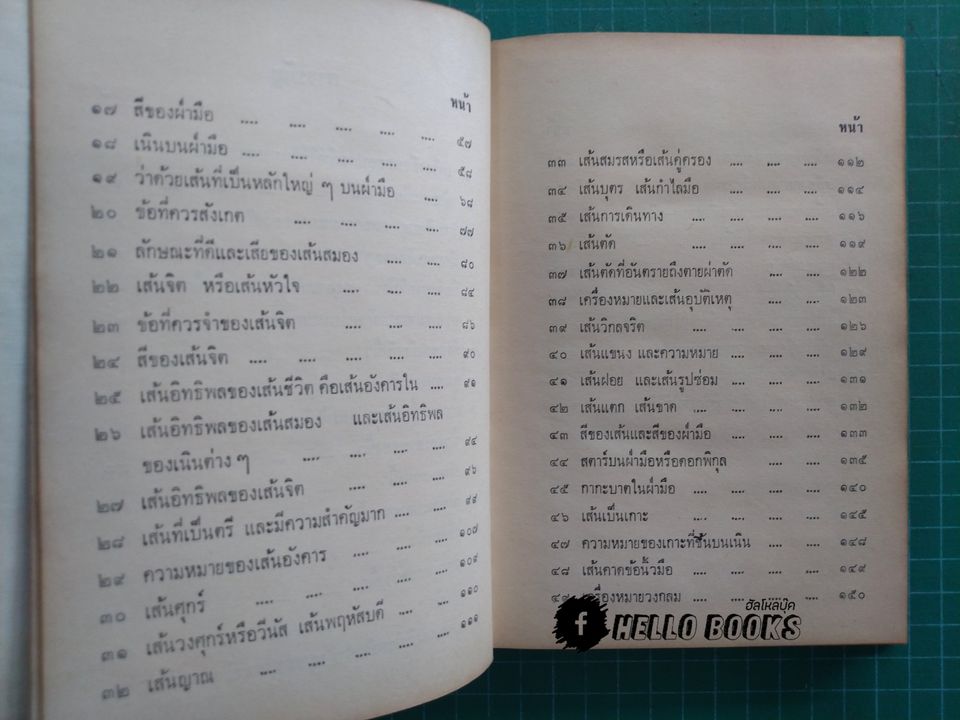 หน้า
๑๗ สีของฝ่ามือ .... .... .... .... .... ๕๗
๑๘ เนินบนฝ่ามือ .... .... .... .... .... ๕๘
๑๙ ว่าด้วยเส้นที่เป็นหลักใหญ่ ๆ บนฝ่ามือ .... ๖๘
๒๐ ข้อที่ควรสังเกต .... .... .... .... ๗๗
๒๑ ลักษณะที่ดีและเสียของเส้นสมอง .... .... ๘๐
๒๒ เส้นจิต หรือเส้นหัวใจ .... .... .... ๘๔
๒๓ ข้อที่ควรจำของเส้นจิต .... .... .... ๘๖
๒๔ สีของเส้นจิต .... .... .... .... .... ๙๐
๒๕ เส้นอิทธิพลของเส้นชีวิต คือเส้นอังคารใน .... ๙๑
๒๖ เส้นอิทธิพลของเส้นสมอง และเส้นอิทธิพล
ของเนินต่าง ๆ .... .... .... .... ๙๔
๒๗ เส้นอิทธิพลของเส้นจิต .... .... .... ๙๖
๒๘ เส้นที่เป็นตรี และมีความสำคัญมาก .... .... ๙๙
๒๙ ความหมายของเส้นอังคาร .... .... .... ๑๐๗
๓๐ เส้นศุกร์ .... .... .... .... .... ๑๐๙
๓๑ เส้นวงศุกร์หรือวีนัส เส้นพฤหัสบดี .... .... ๑๑๐
๓๒ เส้นญาณ .... .... .... .... .... ๑๑๑
หน้า
๓๓ เส้นสมรสหรือเส้นคู่ครอง .... .... .... ๑๑๒
๓๔ เส้นบุตร เส้นกำไลมือ .... .... .... ๑๑๔
๓๕ เส้นการเดินทาง .... .... .... .... ๑๑๖
๓๖ เส้นตัด .... .... .... .... ๑๑๙
๓๗ เส้นตัดที่อันตรายถึงตายผ่าตัด .... .... ๑๒๒
๓๘ เครื่องหมายและเส้นอุบัติเหตุ .... .... ๑๒๓
๓๙ เส้นวิกลจริต .... .... .... .... ๑๒๖
๔๐ เส้นแขนง และความหมาย .... .... .... ๑๒๙
๔๑ เส้นฝอย และเส้นรูปซ่อม .... .... .... ๑๓๑
๔๒ เส้นแตก เส้นขาด .... .... .... .... ๑๓๒
๔๓ สีของเส้นและสีของฝ่ามือ .... .... .... ๑๓๓
๔๔ สตาร์บนฝ่ามือหรือดอกพิกุล .... .... ๑๓๕
๔๕ กากะบาตในฝ่ามือ .... .... .... .... ๑๔๐
๔๖ เส้นเป็นเกาะ .... .... .... .... ๑๔๕
๔๗ ความหมายของเกาะที่ขึ้นบนเนิน .... .... ๑๔๘
๔๘ เส้นคาดข้อนิ้วมือ .... .... .... .... ๑๔๙
๔๙ เครื่องหมายวงกลม .... .... .... .... ๑๕๐
ฮัลโหลบุ๊ค
f HELLO BOOKS